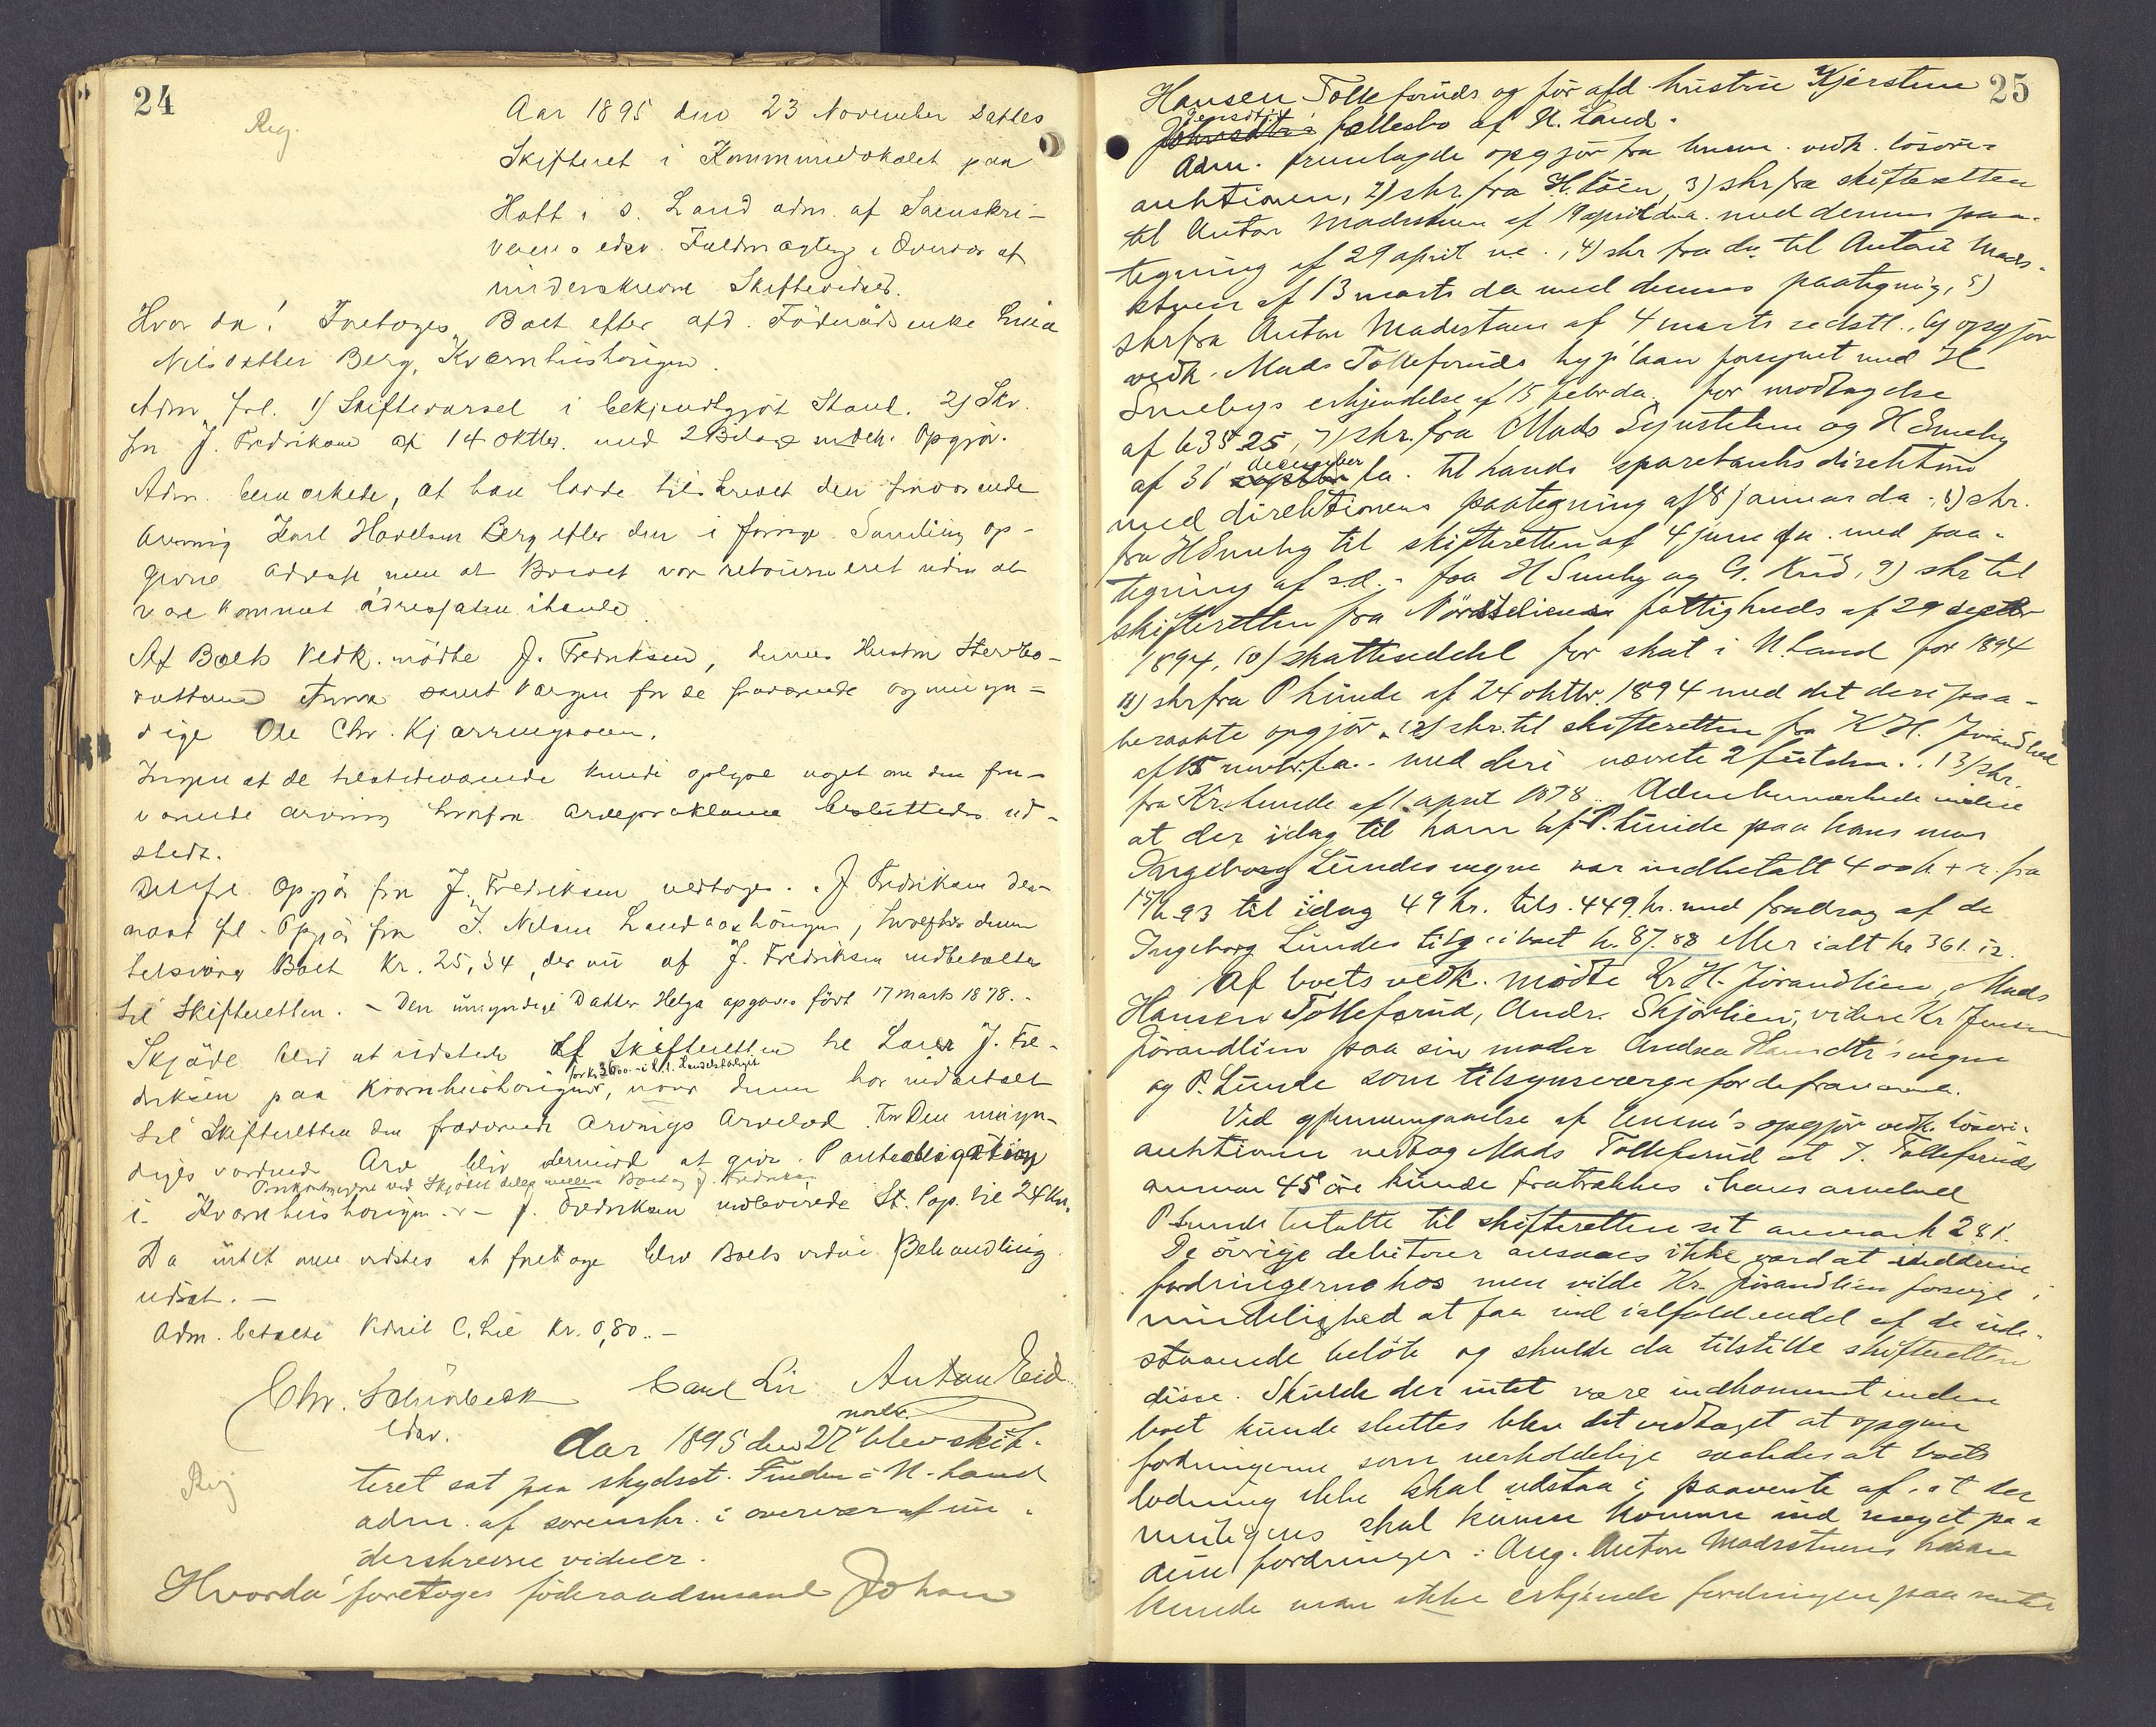 24
Reg.
Aar 1895 den 23 November sattes
Skifteret i Kommunelokalet paa
Hoff i S. Land adm. af Sorenskri-
verens edsv. Fuldmægtig i Overvær af
underskrevne Skiftevidner.
Hvor da! Foretoges Boet efter afd. Föderaadsenke
Nilsdatter Berg, Kværnhushaugen.
Adm. frl. 1) Skiftevarsel i bekjendtgjort Stand. 2) Skr.
fra J. Fredriksen af 14 Oktbr. med 2 Bilage vedk. Opgjör.
Adm. bemærkede, at han havde tilskrevet den fraværende
Arving Karl Hovelsen Berg efter den i forrige Samling op-
givne Adresse men at Brevet var retourneret uden at
være kommet adressaten ihænde.
Af Boets Vedk. mödte J. Fredriksen, dennes Hustru Stervbo-
datteren Anna samt Værgen for de fraværende og umyn-
dige Ole Chr. Kjærringsveen.
Ingen af de tilstedeværende kunde oplyse noget om den fra-
værende Arving hvorfor Arveproklama besluttedes ud-
stedt.
Opgjör fra J. Fredriksen vedtoges. J. Fredriksen der-
næst frl. Opgjör fra J. Nilsen Landaashaugen, hvorefter denne
tilsvarer Boet Kr. 25,34, der nu af J. Fredriksen indbetaltes
til Skifteretten. - Den umyndige Datter Helga opgaves födt 17 Marts 1878. -
Skjöde blir at udstede af Skifteretten til Laver J. Fre-
driksen paa Kværnhushaugen, for Kr. 3600 naar denne har indbetalt
til Skifteretten den fraværende Arvings Arvelod. For Den umyn-
diges vordende Arv blir derimod at give Panteobligation
Omkostningerne ved Skjödet deles mellem Boet og J. Fredriksen
i Kværnhushaugen. - J. Fredriksen indleverede St. Pap. til 24 Kr.
Da intet mere vidstes at foretage blev Boets videre Behandling
udsat. -
Adm. betalte Vidnet C. Lie Kr. 0,80. -
Chr. Schönbeck Carl Lie Anton Eid
edsv.
Reg
Aar 1895 den 27 novbr. blev skif-
teret sat paa skydsst. Finden i N. Land
adm. af sorenskr. i overvær af un-
derskrevne vidner.
Hvorda' foretoges föderaadsmand Johan
25
Hansen Tollefsruds og för afd. hustru Kjerstine
Jensdtr's fællesbo af N. Land.
Adm. fremlagde opgjör fra lensm. vedk. lösöre-
auktionen, 2) skr. fra H. Löen, 3) skr. fra skifteretten
til Anton Madsstuen af 19 april d.a. med dennes paa-
tegning af 29 april ne., 4) skr. fra do til Anton Mads-
stuen af 13 marts da med dennes paategning, 5)
skr fra Anton Madsstuen af 4 marts sidstl., 6) opgjör
vedk. Mads Tollefsruds hyp. laan forsynet med H
Smebys erkjendelse af 15 febr da. for modtagelse
af 635.25, 7) skr. fra Mads Sejustelien og H Smeby
af 31 december fa. til Lands sparebanks direktion
med direktionens paategning af 8 januar da; 8) skr.
fra H Smeby til skifteretten af 4 juni da. med paa-
tegning af s.d. fra H Smeby og G. Rud, 9) skr til
skifteretten fra Nordsteliens fattigkreds af 29 septbr
1894, 10) skatteseddel for skat i N. Land for 1894
11) skr fra P Lunde af 24 oktbr. 1894 med det deri paa-
beraabte opgjör, 12) skr. til skifteretten fra K H. Jörandlien
af 15 novbr. fa. med deri nævnte 2 13) skr.
fra Kr. Lunde af 1 april 1878. Adm bemærkede videre
at der idag til ham af P. Lunde paa hans mor
Ingeborg Lundes vegne var indbetalt 400 k + r. fra
15/6 93 til idag 49 kr. tils. 449 kr. med fradrag af de
Ingeborg Lundes tilg. i boet k. 87.88 eller ialt kr 361.12.
Af boets vedk. mödte Kr H. Jörandlien, Mads
Hansen Tollefsrud, Andr. Skjölien, videre Kr Jensen
Jörandlien paa sin moder Andrea Hansdtr's vegne
og P. Lunde som tilsynsværge for de fraværende.
Ved gjennemgaaelse af lensm's opgjör vedk. lösöre-
auktionen vedtog Mads Tollefsrud at J. Tollefsruds
ansvar 45 öre kunde fratrækkes i hans arvelod
P Lunde betalte til skifteretten sit ansvar k 2.81.
De övrige debitorer ansaaes ikke værd at inddrive
fordringerne hos men vilde Kr. Jörandlien forsöge i
mindelighed at faa ind ialfald endel af de ude-
staaende belöb og skulde da tilstille skifteretten
disse. Skulde der intet være indkommet inden
boet kunde sluttes blev det vedtaget at opgive
fordringerne som uerholdelige saaledes at boets
lodning ikke skal udstaa i paavente af at der
muligens skal kunne komme ind noget paa
dine fordringer. Ang. Anton Madsstuens krav
kunde man ikke erkjende fordringen paa renter